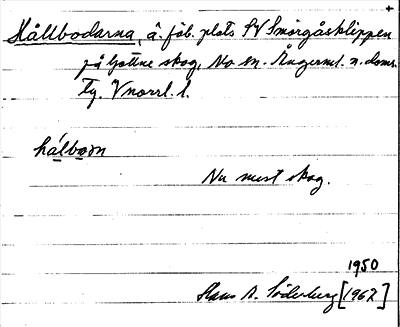 Hållbodarna, å. fäb. plats SV Smörgåsklippen
på Gottne skog, No sn. Ångerml. n. doms.
Tg. Vnorrl. l.
hálboɷn
Nu mest skog.
1950
Hans A. Söderberg [1962]